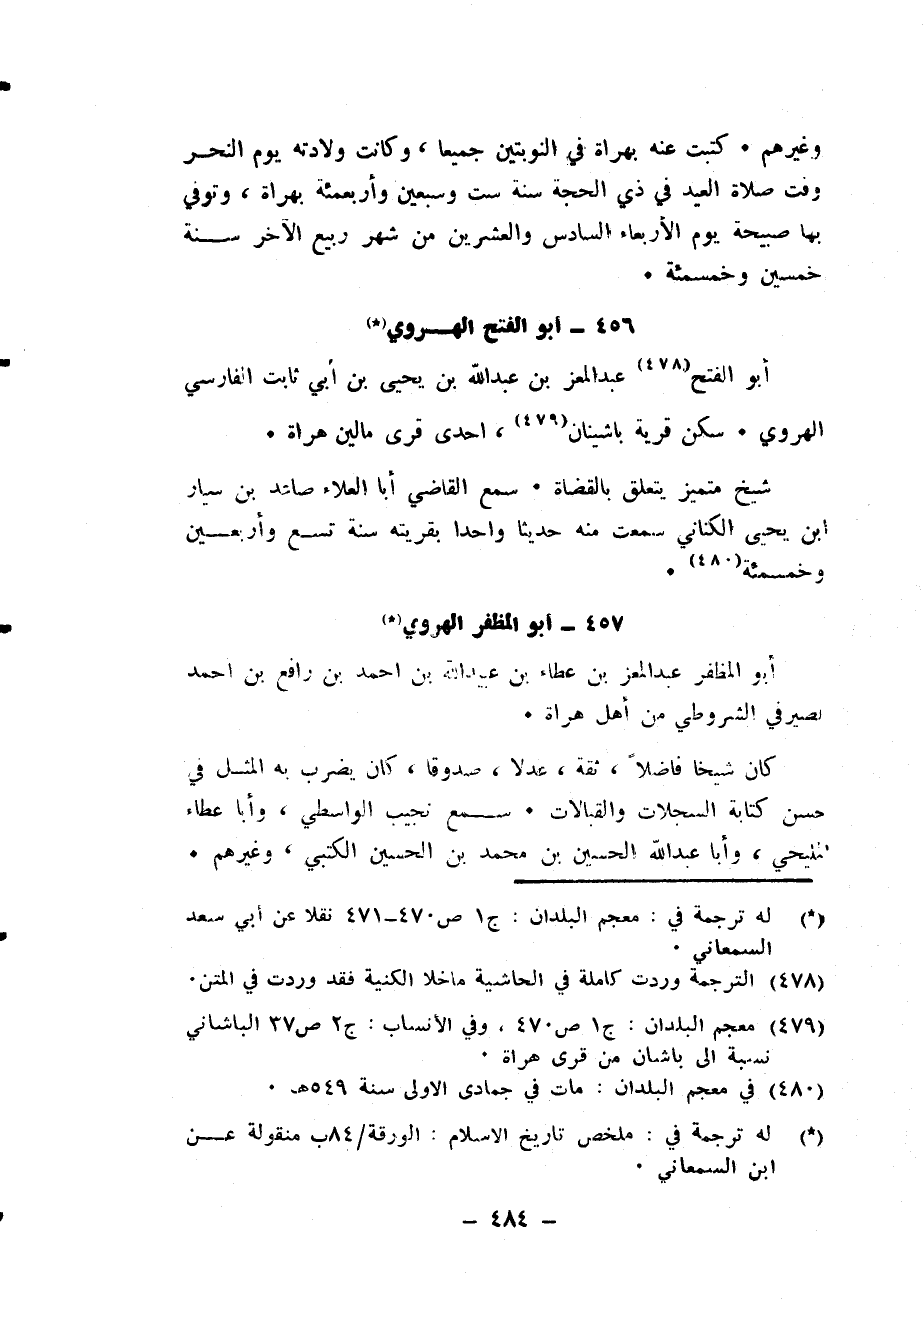 وغيرهم ٠ كتبت عنه بهراة في النوبتين جميعا ، وكانت ولادته يوم النحـر
وقت صلاة العيد في ذي الحجة سنة ست وسبعين وأربعمئة بهراة ، وتوفي
بها صبيحة يوم الأربعاء السادس والعشرين من شهر ربيع الآخر ســـنة
خمسين وخمسمئة ٠
٤٥٦ ــ أبو الفتح الهـــروي(*)
أبو الفتح(٤٧٨) عبدالمعز بن عبدالله بن يحيى بن أبي ثابت الفارسي
الهروي ٠ سكن قرية باشينان(٤٧٩) ، احدى قرى مالين هراة ٠
شيخ متميز يتعلق بالقضاة ٠ سمع القاضي أبا العلاء صاعد بن سيار
ابن يحيى الكناني سمعت منه حديثا واحدا بقريته سنة تســع وأربعــين
وخمسمئة(٤٨٠) ٠
٤٥٧ ــ أبو المظفر الهروي(*)
أبو المظفر عبدالمعز بن عطاء بن عبيدالله بن احمد بن رافع بن احمد
لصيرفي الشروطي من أهل هراة ٠
كان شيخا فاضلاً ، ثقة ، عدلا ، صدوقا ، كان يضرب به المثــل في
حسن كتابة السجلات والقبالات ٠ ســـمع نجيب الواسطي ، وأبا عطاء
المليحي ، وأبا عبدالله الحسين بن محمد بن الحسين الكتبي ، وغيرهم ٠
(*) له ترجمة في : معجم البلدان : ج١ ص٤٧٠ــ٤٧١ نقلا عن أبي سعد
السمعاني ٠
(٤٧٨) الترجمة وردت كاملة في الحاشية ماخلا الكنية فقد وردت في المتن٠
(٤٧٩) معجم البلدان : ج١ ص٤٧٠ ، وفي الأنساب : ج٢ ص٣٧ الباشاني
نسبة الى باشان من قرى هراة ٠
(٤٨٠) في معجم البلدان : مات في جمادى الاولى سنة ٥٤٩هـ ٠
(*) له ترجمة في : ملخص تاريخ الاسلام : الورقة/٨٤ب منقولة عـــن
ابن السمعاني ٠
ــ ٤٨٤ ــ